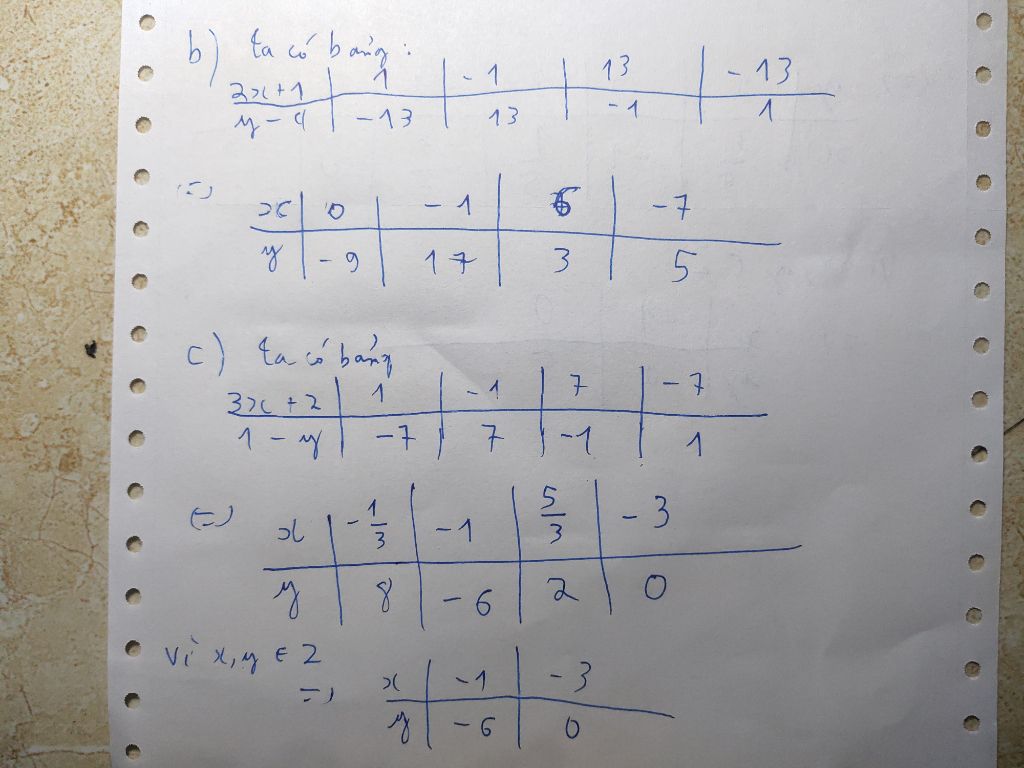 b) ta có bảng:
2x+1 | 1 | -1 | 13 | -13
y-4 | -13 | 13 | -1 | 1
=> x | 0 | -1 | 6 | -7
y | -9 | 17 | 3 | 5
c) ta có bảng
3x+2 | 1 | -1 | 7 | -7
1-y | -7 | 7 | -1 | 1
(=) x | -1/3 | -1 | 5/3 | -3
y | 8 | -6 | 2 | 0
Vì x,y ∈ Z
=> x | -1 | -3
y | -6 | 0